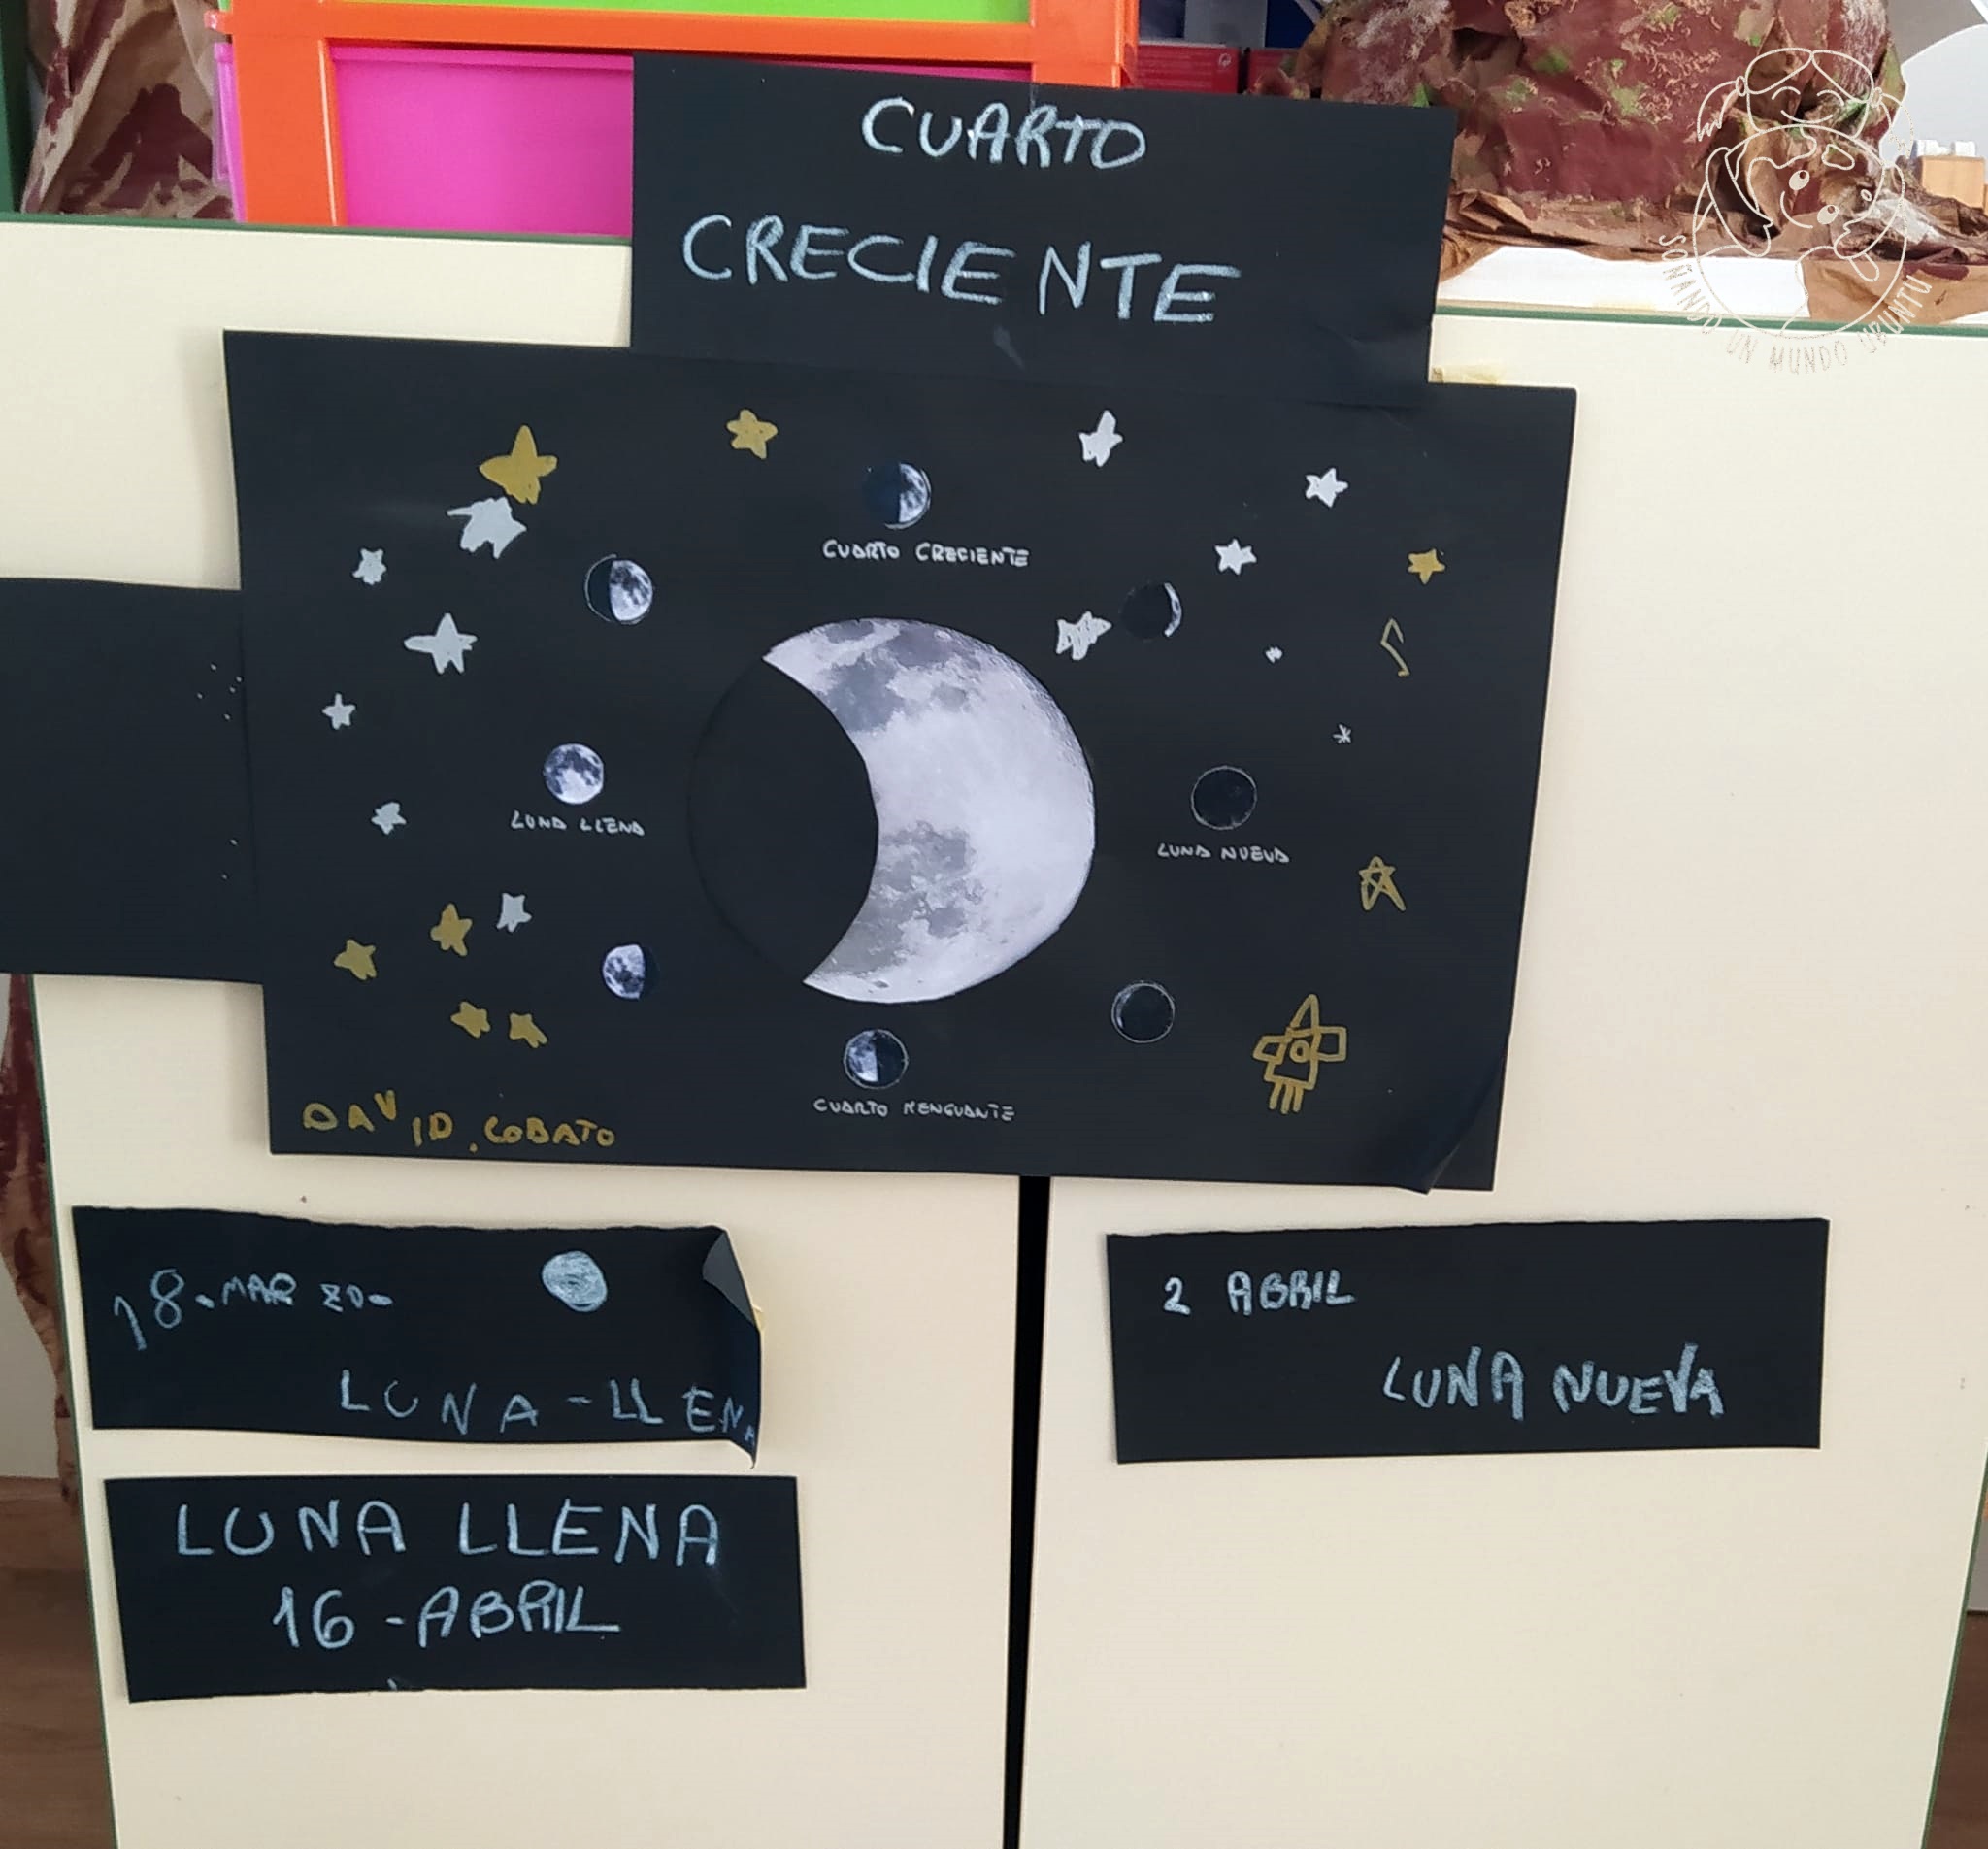 CUARTO
CRECIENTE
SOMANDO UN MUNDO UBUNTU
CUARTO CRECIENTE
LUNA LLENA
LUNA NUEVA
CUARTO MENGUANTE
DAVID.COBATO
18-MARZO-
LUNA-LLENA
2 ABRIL
LUNA NUEVA
LUNA LLENA
16-ABRIL